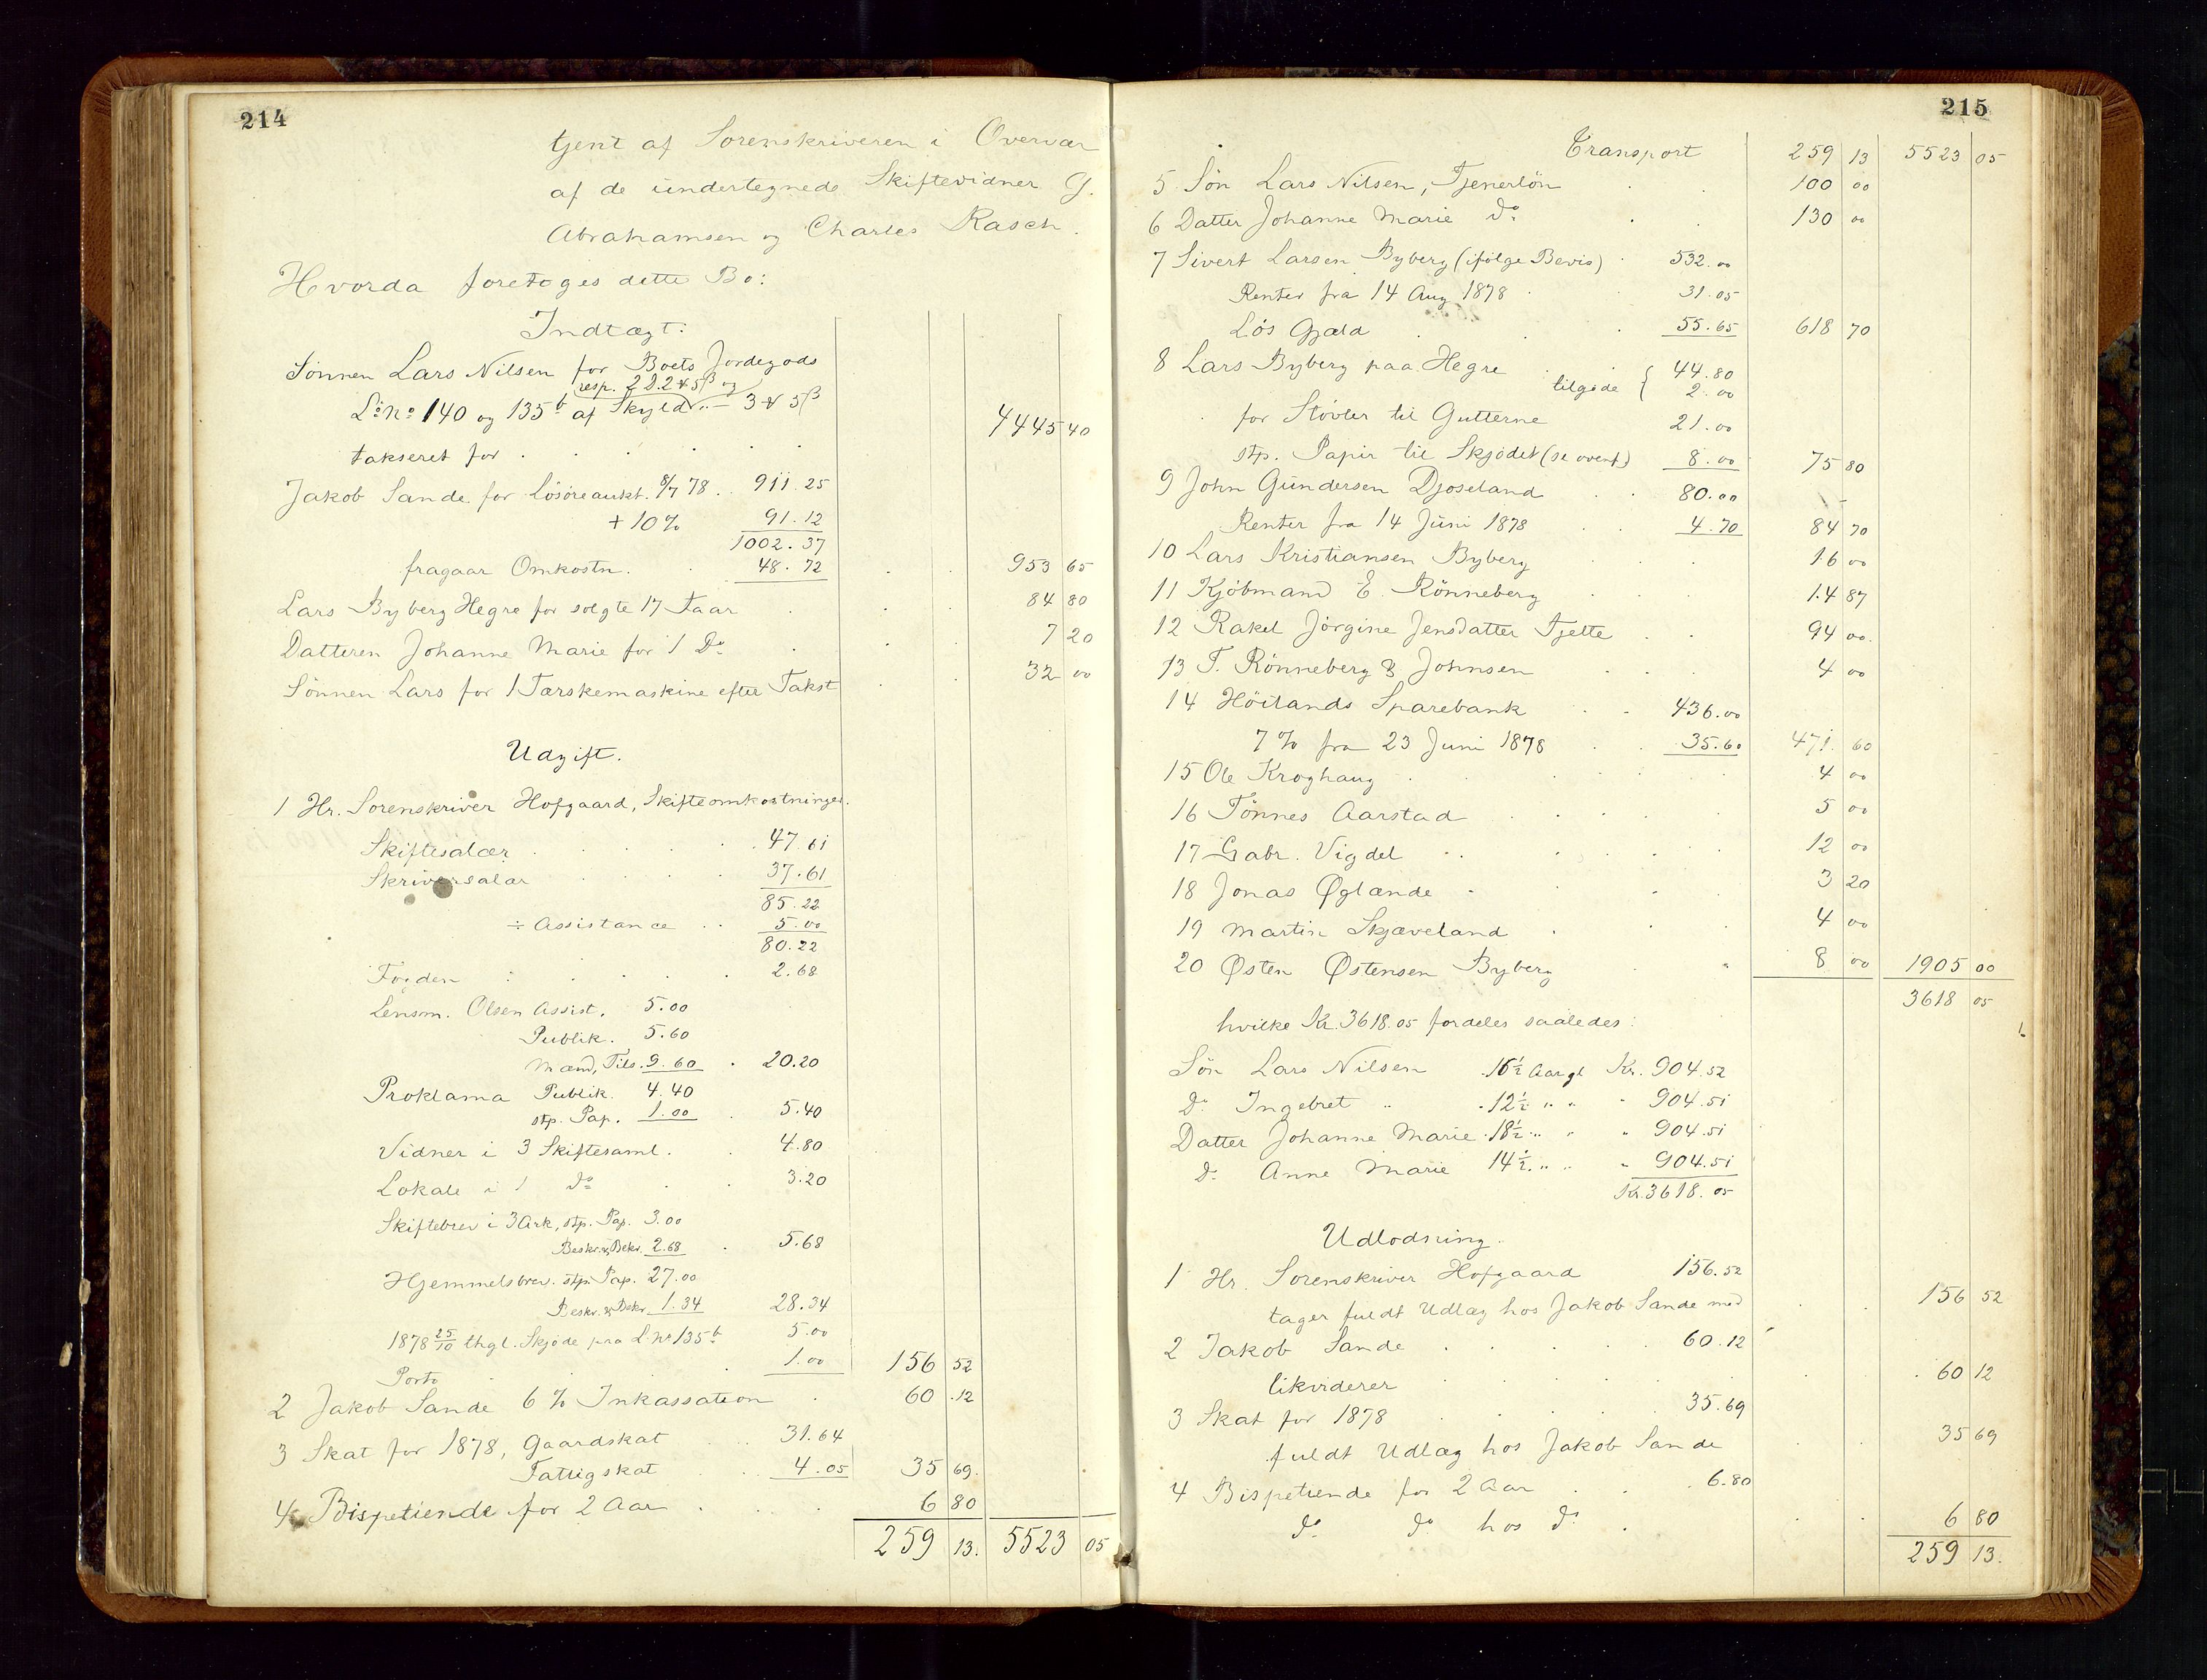 214
tjent af Sorenskriveren i Overvær
af de undertegnede Skiftevidner G.
Abrahamsen og Charles Rasch.
Hvorda foretoges dette Bo:
Indtægt:
Sønnen Lars Nilsen for Boets Jordegods
resp. 2 D. 2 # 5 β og
L: No 140 og 135 b af Skyld " – 3 # 5 β
takseret for . . . . 4445 40
Jakob Sande for Løsøreaukt. 8/7 78 . . 911.25
+ 10 % 91.12
1002.37
fragaar Omkostn. . 48.72 . . 953 65
Lars Byberg Hegre for solgte 17 Faar . . . 84 80
Datteren Johanne Marie for 1 Do . . . 7 20
Sønnen Lars for 1 Tærskemaskine efter Takst . . 32 00
Udgift.
1 Hr. Sorenskriver Hofgaard, Skifteomkostninger.
Skiftesalær . . . . . 47.61
Skriversalær . . . . 37.61
85.22
÷ Assistance . . 5.00
80.22
Fogden . . . . . 2.68
Lensm. Olsen Assist. 5.00
Publik. 5.60
Mænd, Tils. 9.60 . 20.20
Proklama Publik. 4.40
stp. Pap. 1.00 . 5.40
Vidner i 3 Skiftesaml. . . 4.80
Lokale i 1 do . . 3.20
Skiftebrev i 3 Ark, stp. Pap. 3.00
Beskr. & Bekr. 2.68 . 5.68
Hjemmelsbrev. stp. Pap. 27.00
Beskr. & Bekr. 1.34 28.34
1878 25/10 thgl. Skjøde paa L. No 135 b 5.00
Porto . . 1.00 156 52
2 Jakob Sande 6 % Inkassation . 60 .12
3 Skat for 1878, Gaardskat . . 31.64
Fattigskat . . 4.05 35 69.
4 Bispetiende for 2 Aar . . . 6 80
259 13. 5523 05
215
Transport 259 13 5523 05
5 Søn Lars Nilsen, Tjenerløn . . 100 00
6 Datter Johanne Marie do . . 130 00
7 Sivert Larsen Byberg (ifølge Bevis) . 532.00
Renter fra 14 Aug 1878 . 31.05
Løs Gjæld . . 55.65 618 70
8 Lars Byberg paa Hegre . . { 44.80
tilgode { 2.00
for Støvler til Gutterne 21.00
stp. Papir til Skjødet (se ovenf.) 8.00 75 80
9 John Gundersen Djoseland . . 80.00
Renter fra 14 Juni 1878 . . 4.70 84 70
10 Lars Kristiansen Byberg . . . 16 00
11 Kjøbmand E. Rønneberg . . . 14 87
12 Rakel Jørgine Jensdatter Tjelte . . 94 00.
13 T. Rønneberg & Johnsen . . . 4 00
14 Høilands Sparebank . . 436.00
7 % fra 23 Juni 1878 . . 35.60 471. 60
15 Ole Kroghaug . . . . . 4 00
16 Tønnes Aarstad . . . . . 5 00
17 Gabr. Vigdel . . . . . 12 00
18 Jonas Øglænde . . 3 20
19 Martin Skjæveland . . . 4 00
20 Østen Østensen Byberg . . 8 00 1905 00
3618 05
hvilke Kr. 3618.05 fordeles saaledes:
Søn Lars Nilsen . 16½ Aar gl Kr. 904.52
do Ingebret " . 12½ " " " 904.51
Datter Johanne Marie . 18½ " " " 904.51
do Anne Marie 14½ " " " 904.51
Kr. 3618.05
Udlodning.
1 Hr. Sorenskriver Hofgaard 156.52
tager fuldt Udlæg hos Jakob Sande med . . 156 52
2 Jakob Sande . . . . . 60.12
likviderer . . . . . . . 60 12
3 Skat for 1878 . . . . 35.69
fuldt Udlæg hos Jakob Sande . . 35 69
4 Bispetiende for 2 Aar . . . 6.80
do do hos do . . . 6 80
259 13.